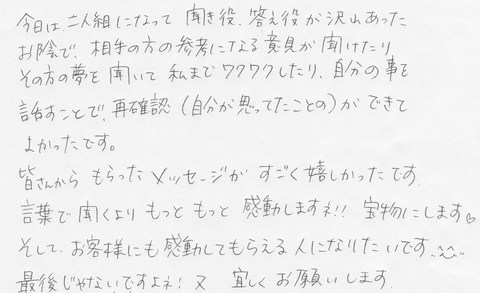 今日は、二人組になって 聞き役、答え役が沢山あった
お陰で、相手の方の参考になる意見が聞けたり
その方の夢を聞いて私までワクワクしたり、自分の事を
話すことで、再確認(自分が思ってたことの)ができて
よかったです。
皆さんから もらったメッセージが すごく嬉しかったです。
言葉で聞くより もっと もっと 感動しますネ!! 宝物にします♡
そして、お客様にも感動してもらえる人になりたいです。^^
最後じゃないですよネ! 又 宜しくお願いします。